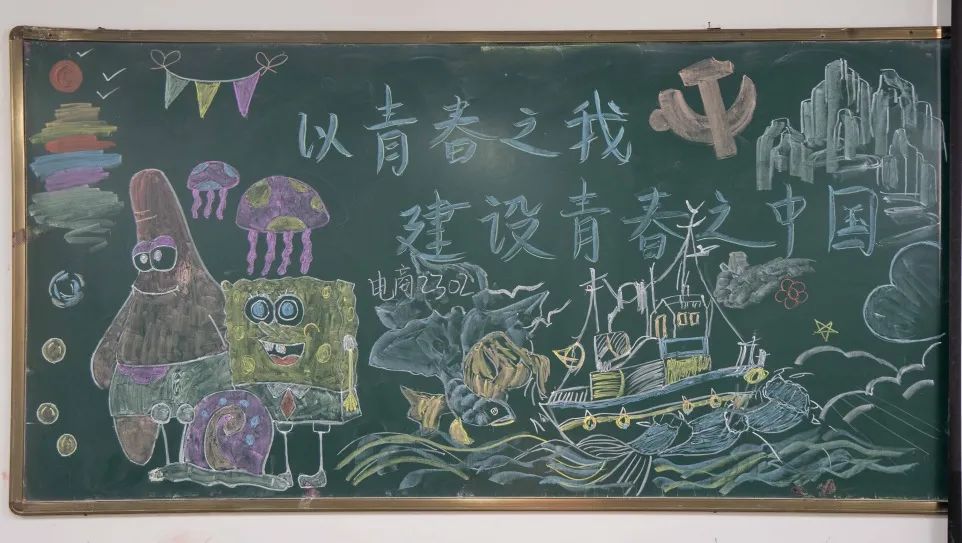 以青春之我
建设青春之中国
电商2302